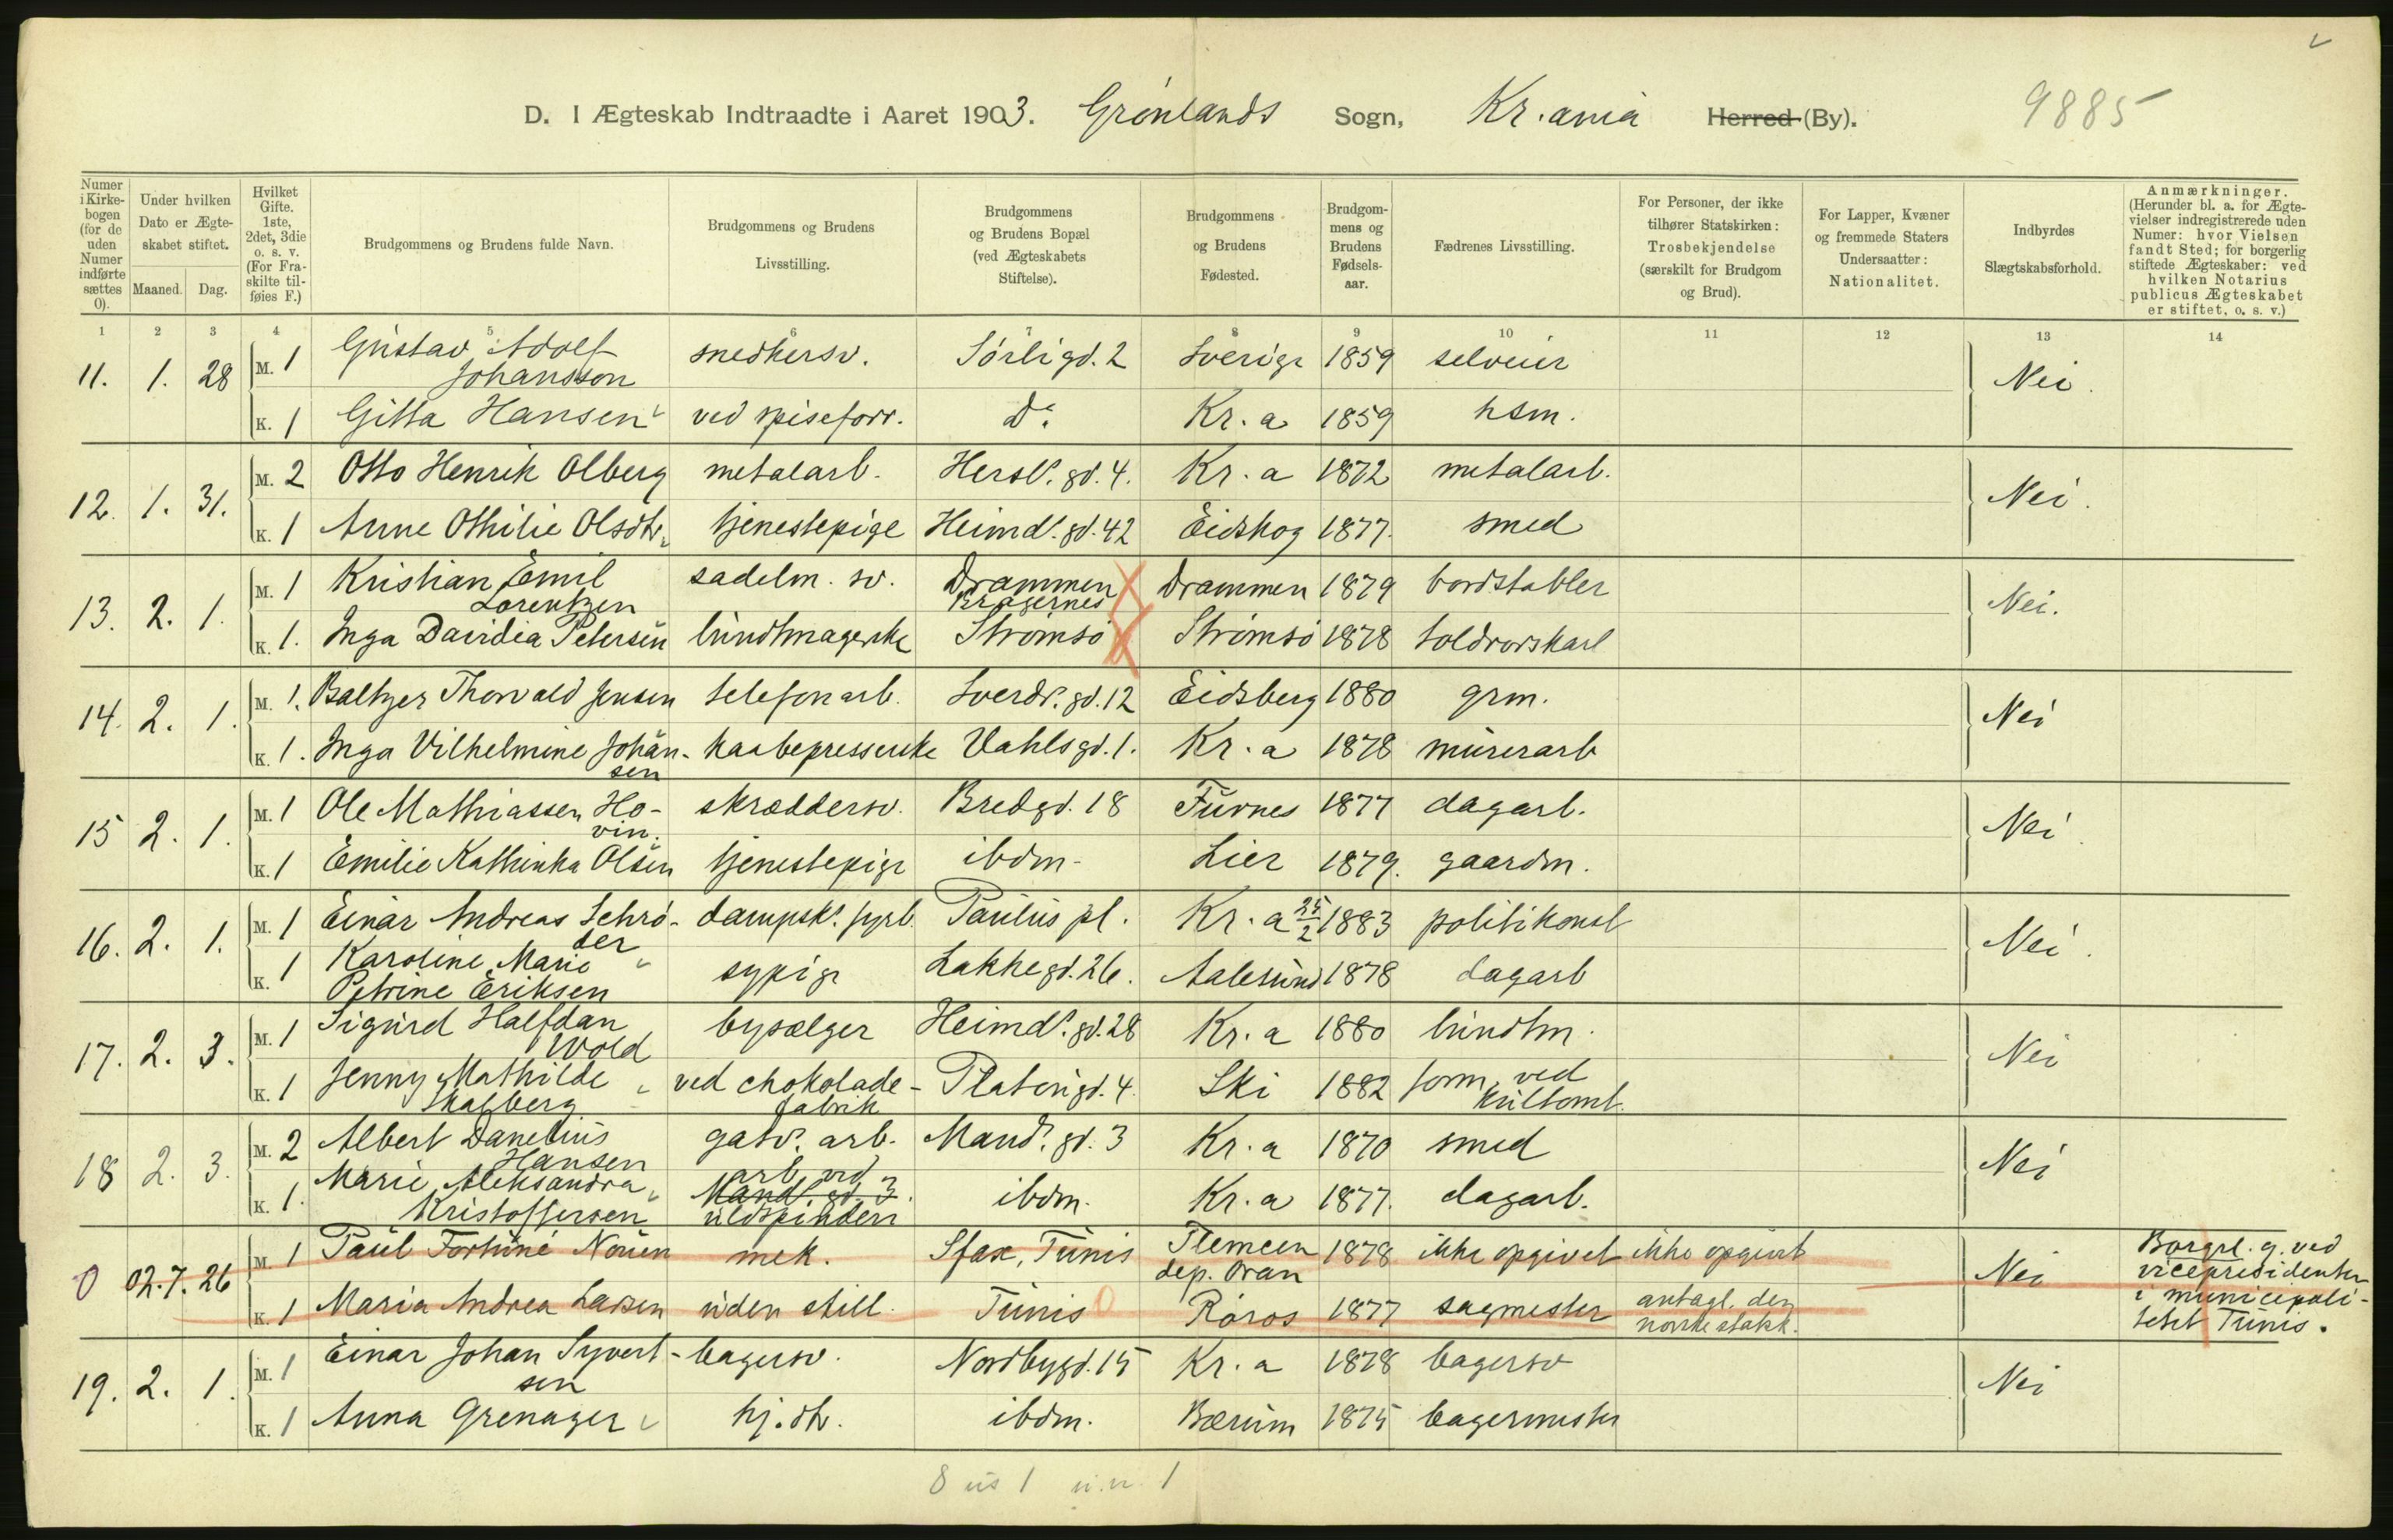 D. I Ægteskab Indtraadte i Aaret 1903. Grønlands Sogn, Kr.ania Herred (By). 9885
Numer i Kirkebogen (for de uden Numer indførte sættes 0).
Under hvilken Dato er Ægteskabet stiftet.
Maaned. Dag.
Hvilket Gifte. 1ste, 2det, 3die o. s. v. (For Fraskilte tilføies F.)
Brudgommens og Brudens fulde Navn.
Brudgommens og Brudens Livsstilling.
Brudgommens og Brudens Bopæl (ved Ægteskabets Stiftelse).
Brudgommens og Brudens Fødested.
Brudgommens og Brudens Fødselsaar.
Fædrenes Livsstilling.
For Personer, der ikke tilhører Statskirken: Trosbekjendelse (særskilt for Brudgom og Brud).
For Lapper, Kvæner og fremmede Staters Undersaatter: Nationalitet.
Indbyrdes Slægtskabsforhold.
Anmærkninger. (Herunder bl. a. for Ægtevielser indregistrerede uden Numer: hvor Vielsen fandt Sted; for borgerlig stiftede Ægteskaber: ved hvilken Notarius publicus Ægteskabet er stiftet, o. s. v.)
1 2 3 4 5 6 7 8 9 10 11 12 13 14
11. 1. 28 M. 1 Gustav Adolf Johansson snedkersv. Sørligd. 2 Sverige 1859 selveier Nei.
K. 1 Gitta Hansen ved spiseforr. Do. Kr.a 1859 hsm.
12. 1. 31. M. 2 Otto Henrik Olberg metalarb. Hersl. gd. 4. Kr.a 1872 metalarb. Nei.
K. 1 Anne Othilie Olsdtr. tjenestepige Heimd. gd. 42 Eidskog 1877. smed
13. 2. 1. M. 1 Kristian Emil Lorentzen sadelm. sv. Drammen Bragernes Drammen 1879 bordstabler Nei.
K. 1. Inga Davidia Petersen bundtmagerske Strømsø Strømsø 1878 toldrorskarl
14. 2. 1. M. 1. Baltzer Thorvald Jensen telefonarb. Sverdr. gd. 12 Eidsberg 1880 grm. Nei
K. 1. Inga Vilhelmine Johansen kaabepresserske Vahlsgd. 1. Kr.a 1878 murerarb
15 2. 1. M. 1 Ole Mathiassen Hovin. skræddersv. Bredgd. 18 Furnes 1877 dagarb. Nei
K. 1 Emilie Kathinka Olsen tjenestepige ibdm. Lier 1879. gaardm.
16. 2. 1. M. 1 Einar Andreas Schrøder dampsk. fyrb. Paulus pl. Kr.a 25/2 1883 politikonst Nei.
K. 1 Karoline Marie Petrine Eriksen sypige Lakkegd. 26. Aalesund 1878 dagarb
17. 2. 3. M. 1 Sigurd Halfdan Wold bysælger Heimd. gd. 28 Kr.a 1880 bundtm. Nei
K. 1 Jenny Mathilde Skalberg ved chokoladefabrik Platougd. 4. Ski 1882 form. ved kultomt.
18 2. 3. M. 2 Albert Danelius Hansen gasv. arb. Mand. gd. 3 Kr.a 1870 smed Nei
K. 1. Marie Aleksandra Kristoffersen arb. ved Mand. gd. 3. uldspinderi ibdm. Kr.a 1877. dagarb.
0 02. 7. 26 M. 1 Paul Fortuné Nouen mek. Sfax, Tunis Tlemcen dep. Oran 1878 ikke opgivet ikke opgivet Nei Borgrl. g. ved vicepresidenten i municipalitetet Tunis.
K. 1 Maria Andrea Larsen uden still. Tunis 0 Røros 1877 sagmester antagl. den norske statsk.
19. 2. 1. M. 1 Einar Johan Syvertsen bagersv. Nordbygd. 15 Kr.a 1878 bagersv Nei
K. 1 Anna Grenager hj. dtr. ibdm. Bærum 1875 bagermester
8 us 1 u.n. 1